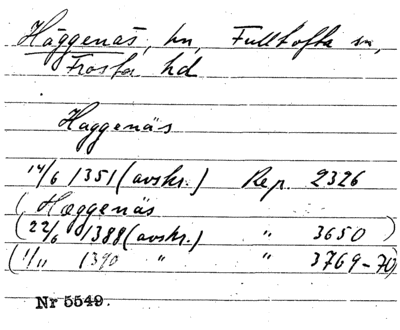 Häggenäs, hn, Fulltofta sn,
Frosta hd
Haggenäs
14/6 1351 (avskr.) Rep. 2326
(Hæggenäs
(22/6 1388 (avskr.) " 3650)
(1/11 1390 " " 3769-70)
Nr 5549.